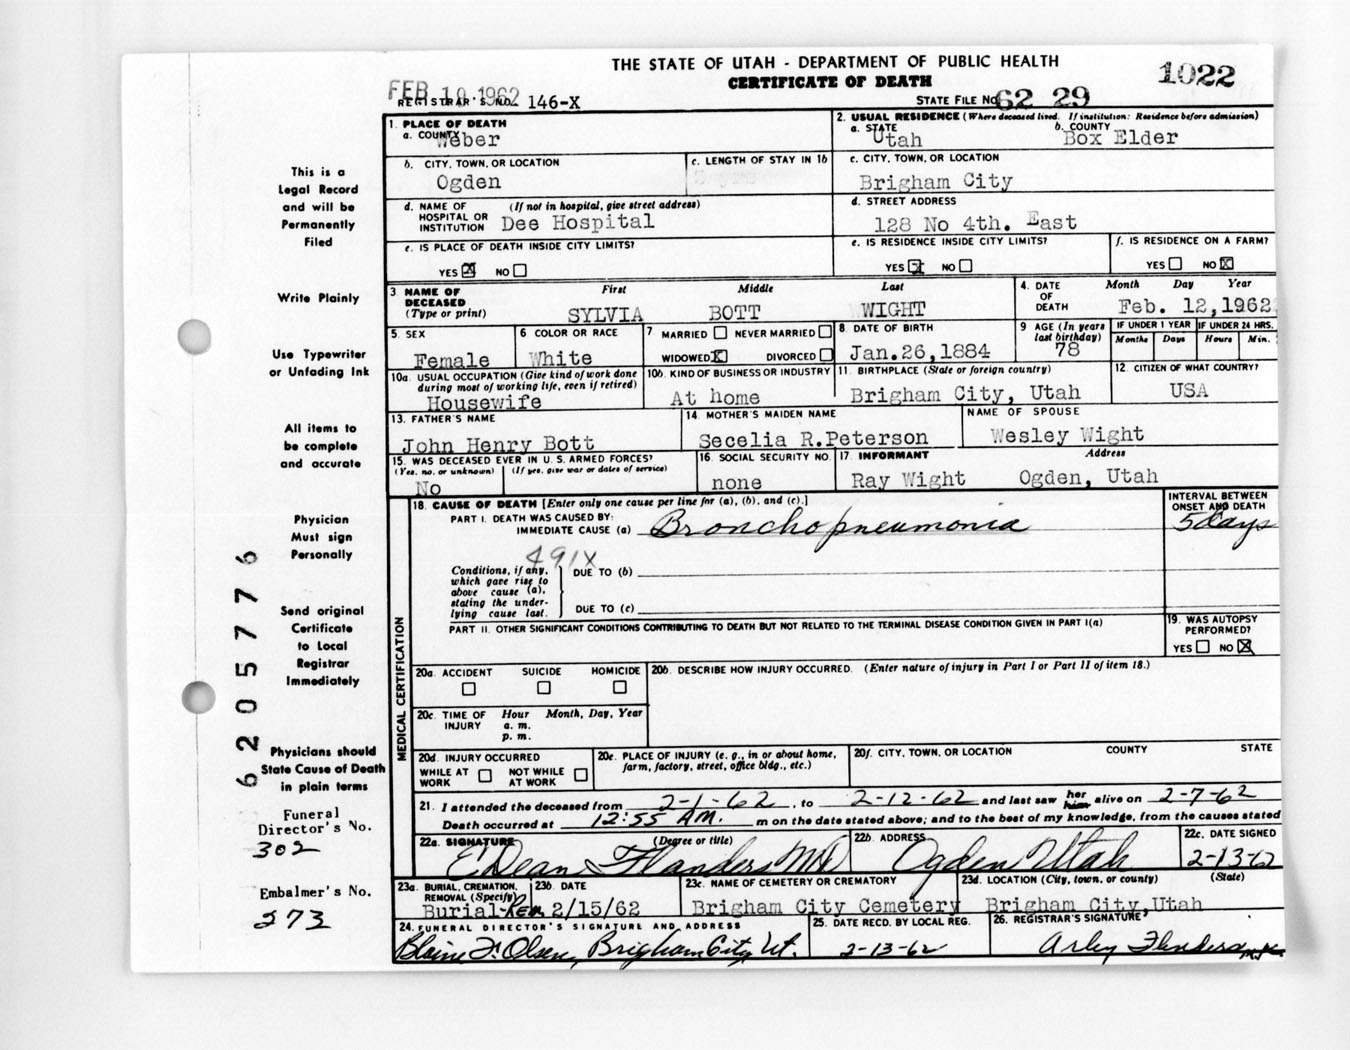 THE STATE OF UTAH - DEPARTMENT OF PUBLIC HEALTH
1022
CERTIFICATE OF DEATH
FEB 19 1962
REGISTRAR'S NO. 146-X
STATE FILE NO. 62 29
1. PLACE OF DEATH
a. COUNTY Weber
2. USUAL RESIDENCE (Where deceased lived. If institution: Residence before admission)
a. STATE Utah
b. COUNTY Box Elder
b. CITY, TOWN, OR LOCATION Ogden
c. LENGTH OF STAY IN 1b
c. CITY, TOWN, OR LOCATION Brigham City
d. NAME OF HOSPITAL OR INSTITUTION (If not in hospital, give street address) Dee Hospital
d. STREET ADDRESS 128 No 4th. East
e. IS PLACE OF DEATH INSIDE CITY LIMITS?
YES X NO
e. IS RESIDENCE INSIDE CITY LIMITS?
YES X NO
f. IS RESIDENCE ON A FARM?
YES NO X
3. NAME OF DECEASED (Type or print)
First Middle Last
SYLVIA BOTT WIGHT
4. DATE OF DEATH
Month Day Year
Feb. 12, 1962
5. SEX Female
6. COLOR OR RACE White
7. MARRIED NEVER MARRIED
WIDOWED X DIVORCED
8. DATE OF BIRTH Jan. 26, 1884
9. AGE (In years last birthday) 78
IF UNDER 1 YEAR Months Days
IF UNDER 24 HRS. Hours Min.
10a. USUAL OCCUPATION (Give kind of work done during most of working life, even if retired) Housewife
10b. KIND OF BUSINESS OR INDUSTRY At home
11. BIRTHPLACE (State or foreign country) Brigham City, Utah
12. CITIZEN OF WHAT COUNTRY? USA
13. FATHER'S NAME John Henry Bott
14. MOTHER'S MAIDEN NAME Secelia R.Peterson
NAME OF SPOUSE Wesley Wight
15. WAS DECEASED EVER IN U.S. ARMED FORCES?
(Yes, no, or unknown) (If yes, give war or dates of service)
No
16. SOCIAL SECURITY NO. none
17. INFORMANT Address
Ray Wight Ogden, Utah
MEDICAL CERTIFICATION
18. CAUSE OF DEATH [Enter only one cause per line for (a), (b), and (c).]
INTERVAL BETWEEN ONSET AND DEATH
PART I. DEATH WAS CAUSED BY:
IMMEDIATE CAUSE (a) Bronchopneumonia 5 days
491X
Conditions, if any, which gave rise to above cause (a), stating the underlying cause last.
DUE TO (b)
DUE TO (c)
PART II. OTHER SIGNIFICANT CONDITIONS CONTRIBUTING TO DEATH BUT NOT RELATED TO THE TERMINAL DISEASE CONDITION GIVEN IN PART I(a)
19. WAS AUTOPSY PERFORMED?
YES NO X
20a. ACCIDENT SUICIDE HOMICIDE
20b. DESCRIBE HOW INJURY OCCURRED. (Enter nature of injury in Part I or Part II of item 18.)
20c. TIME OF INJURY Hour Month, Day, Year
a. m.
p. m.
20d. INJURY OCCURRED
WHILE AT WORK NOT WHILE AT WORK
20e. PLACE OF INJURY (e. g., in or about home, farm, factory, street, office bldg., etc.)
20f. CITY, TOWN, OR LOCATION COUNTY STATE
21. I attended the deceased from 2-1-62, to 2-12-62 and last saw her him alive on 2-7-62
Death occurred at 12:55 AM. m on the date stated above; and to the best of my knowledge, from the causes stated
22a. SIGNATURE (Degree or title)
E Dean Flanders MD
22b. ADDRESS Ogden Utah
22c. DATE SIGNED 2-13-62
23a. BURIAL, CREMATION, REMOVAL (Specify) Burial-Rem
23b. DATE 2/15/62
23c. NAME OF CEMETERY OR CREMATORY Brigham City Cemetery
23d. LOCATION (City, town, or county) (State)
Brigham City, Utah
24. FUNERAL DIRECTOR'S SIGNATURE AND ADDRESS
Blaine F. Olsen, Brigham City, Ut.
25. DATE RECD. BY LOCAL REG. 2-13-62
26. REGISTRAR'S SIGNATURE
Arley Flinders
This is a
Legal Record
and will be
Permanently
Filed
Write Plainly
Use Typewriter
or Unfading Ink
All items to
be complete
and accurate
Physician
Must sign
Personally
Send original
Certificate
to Local
Registrar
Immediately
Physicians should
State Cause of Death
in plain terms
Funeral
Director's No.
302
Embalmer's No.
273
62057776